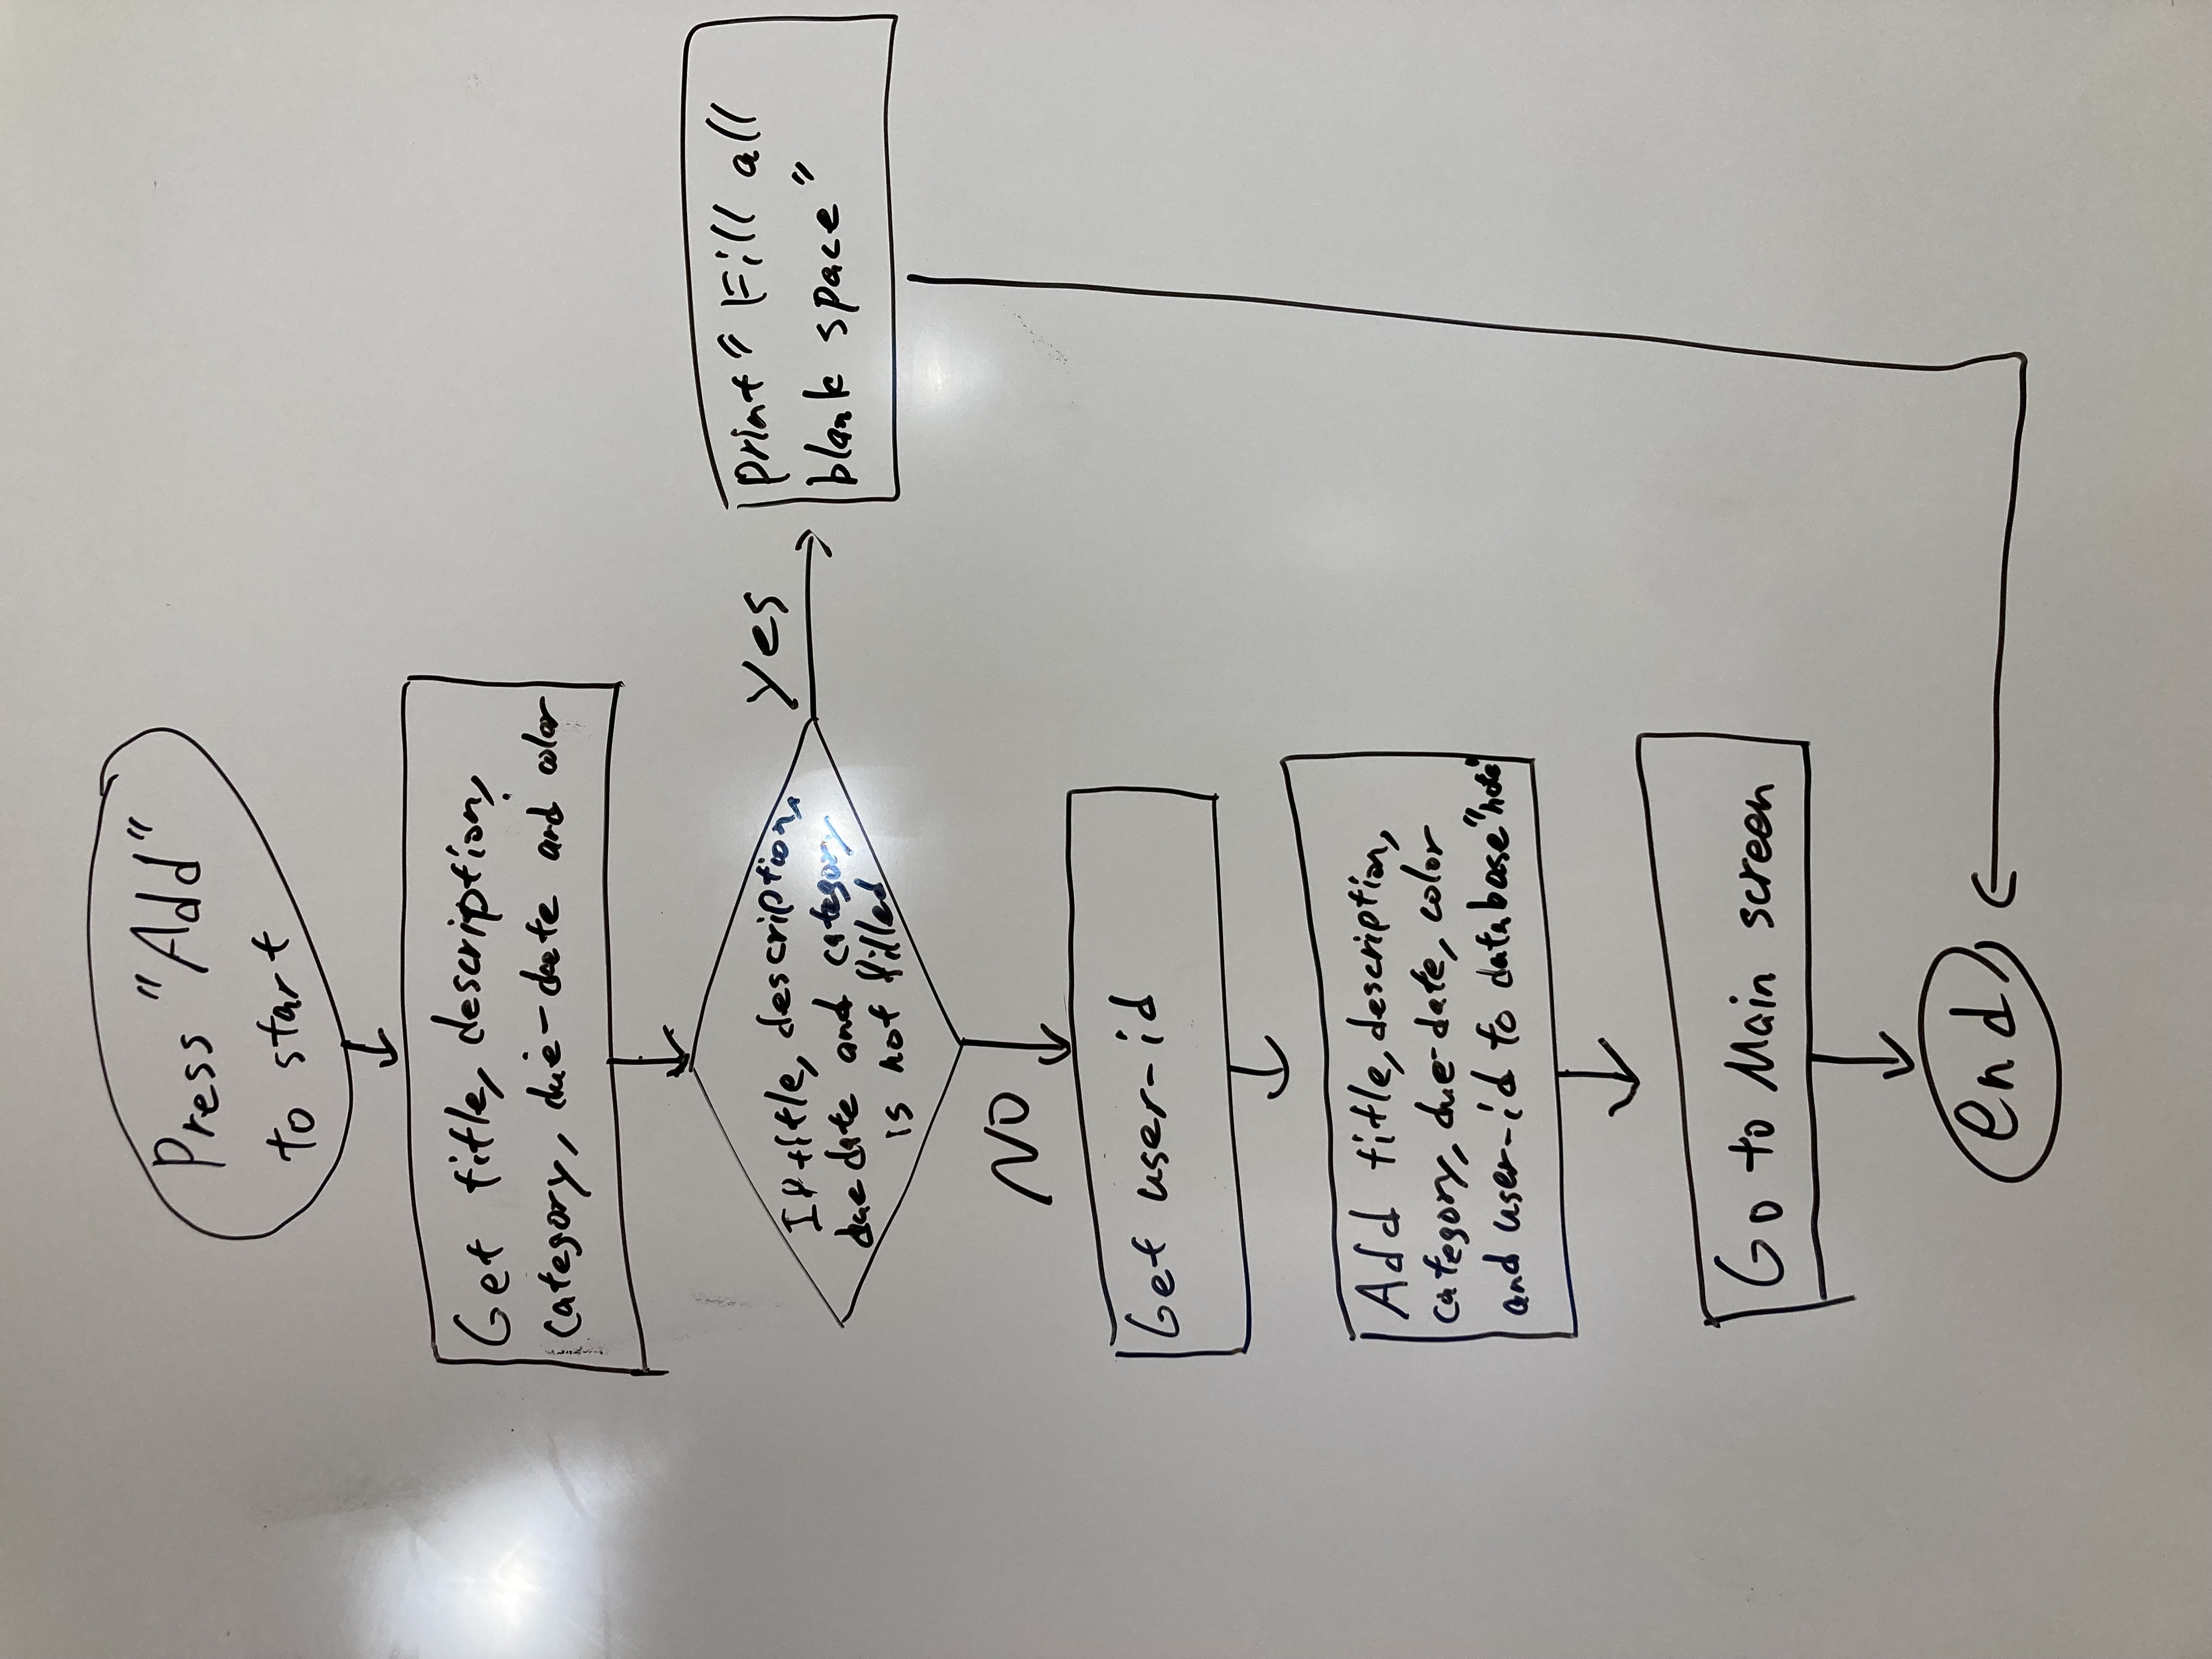 Press "Add"
to start
Get title, description,
category, due-date and color
If title, description,
due date and category
is not filled
Yes
print "Fill all
blank space"
NO
Get user-id
Add title, description,
category, due-date, color
and user-id to database "note"
Go to Main screen
end